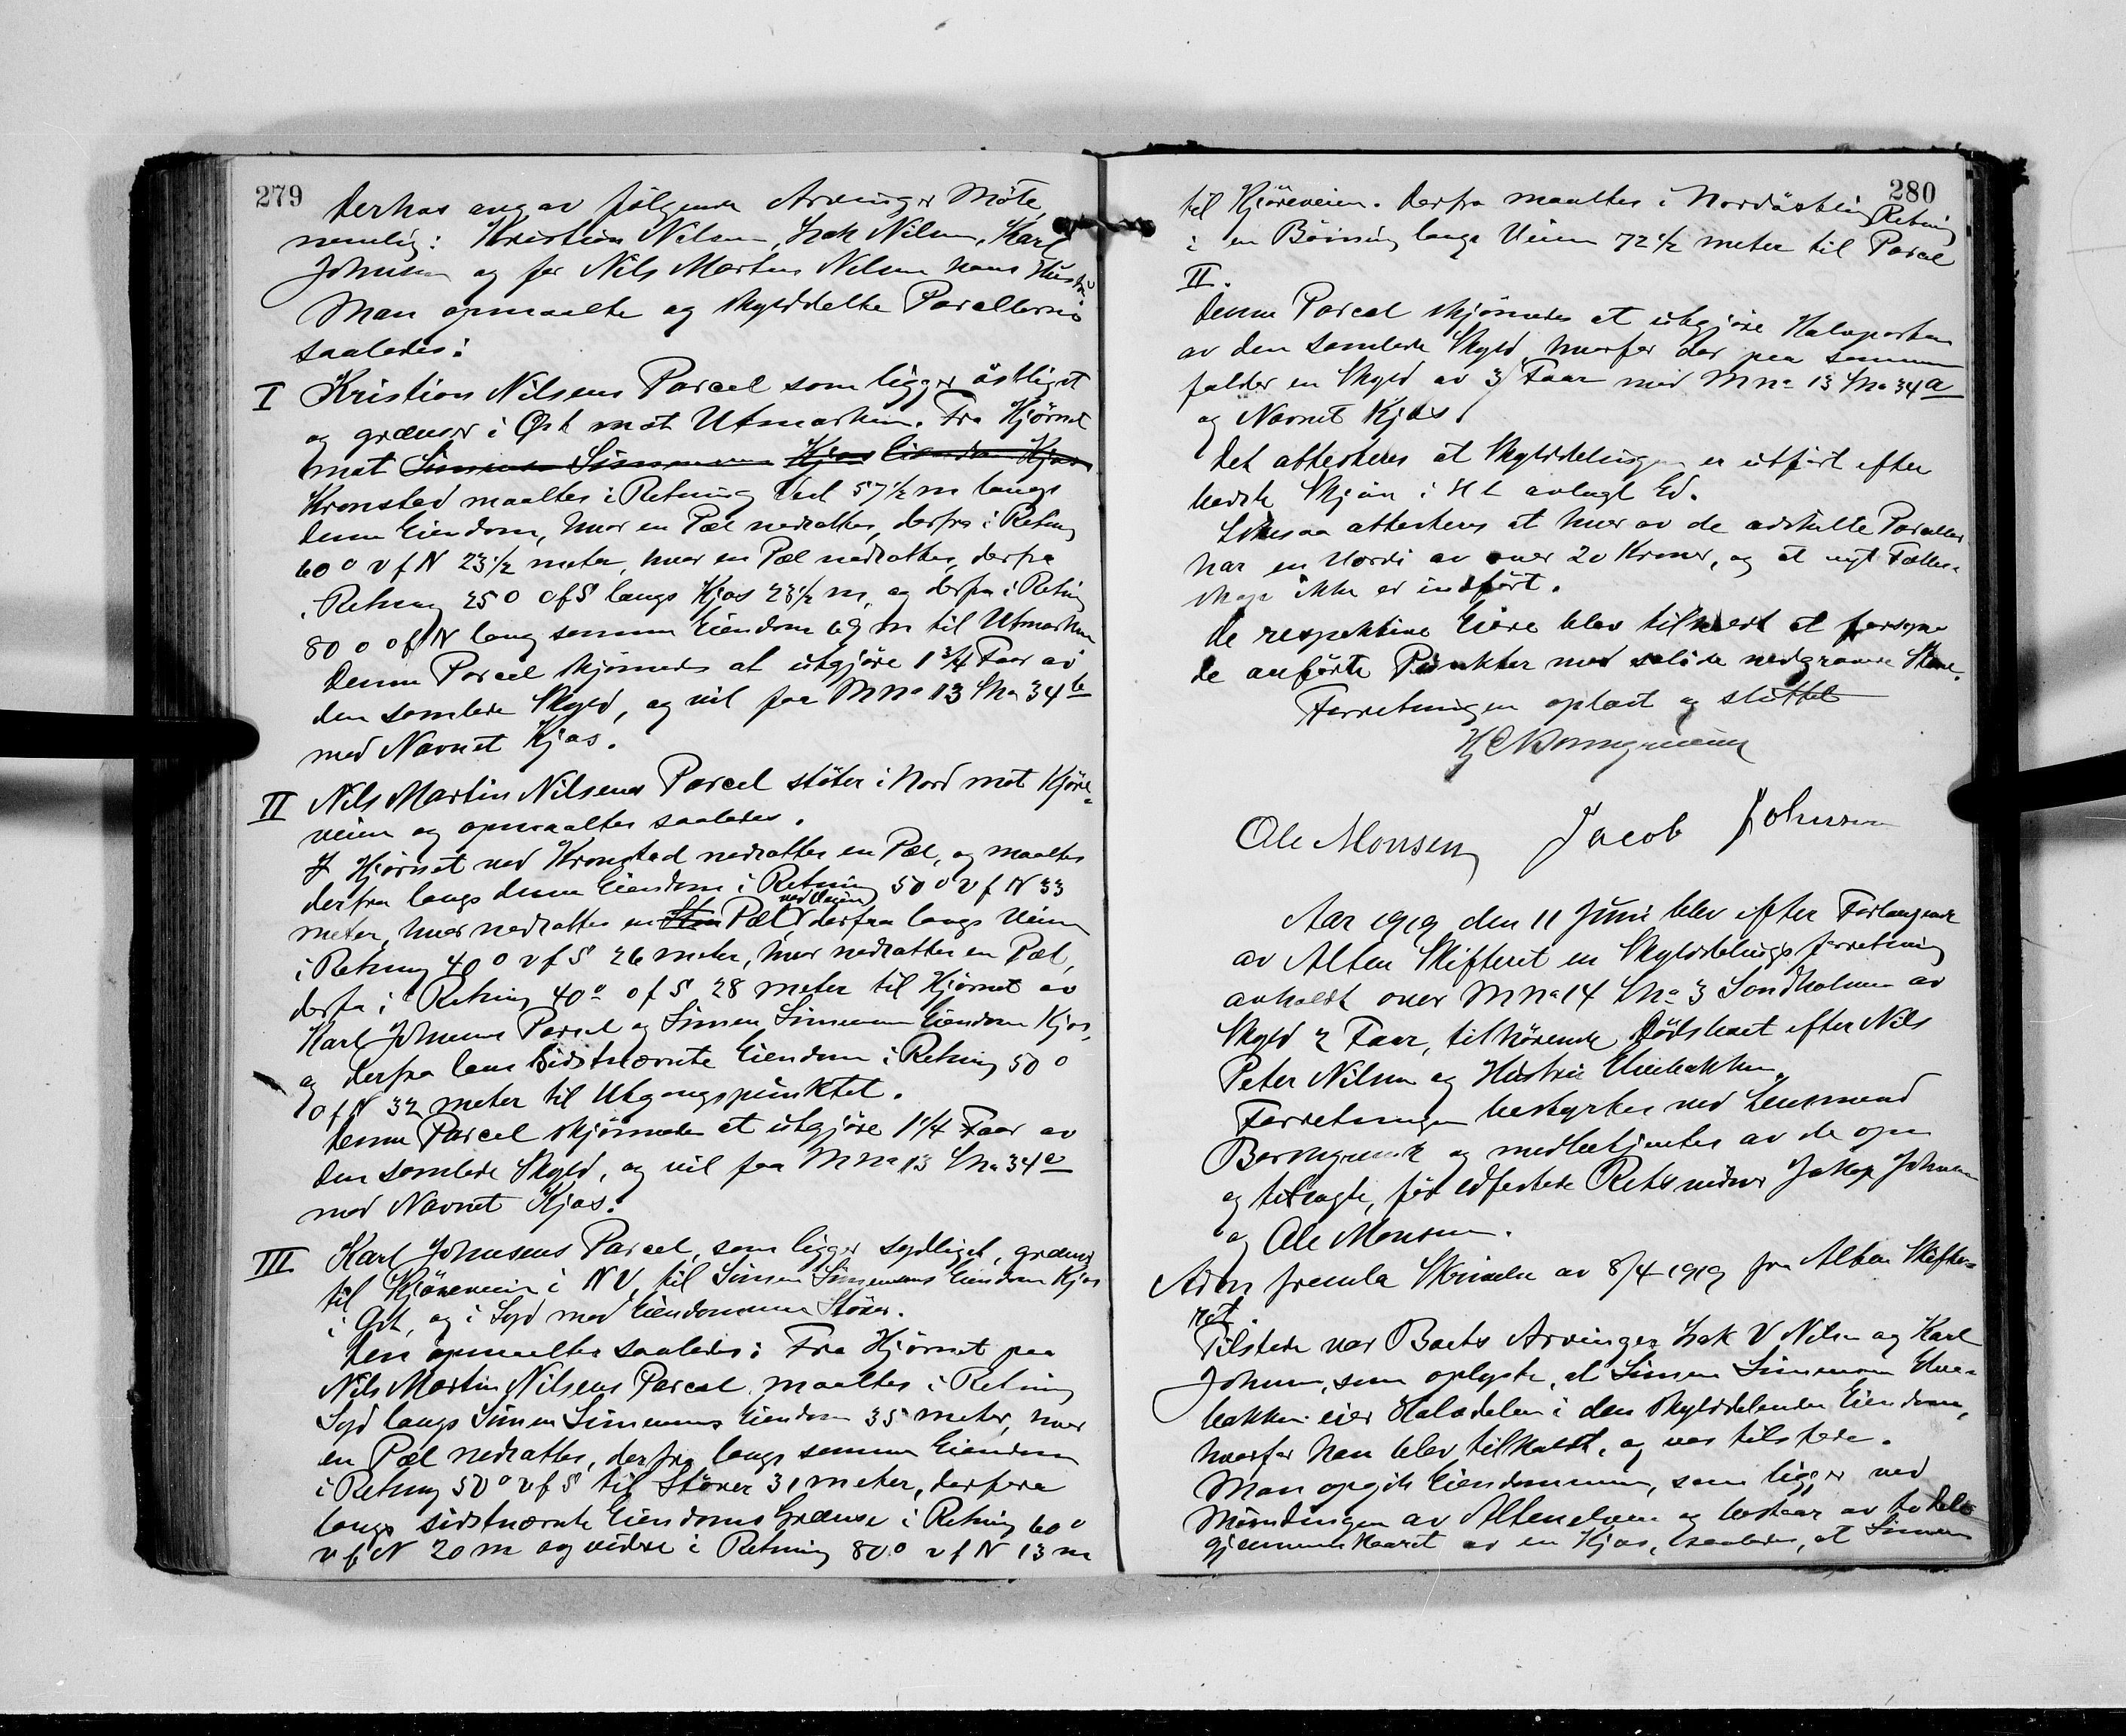 279
Derhos angav følgende Arvinger Møte,
nemlig: Kristian Nilsen, Isak Nilsen, Karl
Johnsen og for Nils Martin Nilsen hans Hustru.
Man opmaalte og skylddelte Parcellerne
saaledes:
I Kristian Nilsens Parcel som ligger östligst
og grænser i Øst mot Utmarken. Fra Hjørnet
mot Simen Simensens Kjos Eiendom Kjos
Kronstad maaltes i Retning Vest 57 1/2 m langs
denne Eiendom, hvor en Pæl nedsattes, derfra i Retning
60° v f N 23 1/2 meter, hvor en Pæl nedsattes, derfra
i Retning 25° o f S langs Kjos 23 1/2 m, og derfra i Retning
80° o f N lang samme Eiendom 69 m til Utmarken
Denne Parcel skjønnedes at utgjöre 1 3/4 Faar av
den samlede Skyld, og vil faa M No 13 L No 34 b
med Navnet Kjos.
II Nils Martin Nilsens Parcel stöter i Nord mot Kjöre-
veien og opmaaltes saaledes.
I Hjörnet ved Kronstad nedsattes en Pæl, og maaltes
derfra langs denne Eiendom i Retning 50° v f N 33
meter, hvor nedsattes en Sten Pæl ved Veien derfra langs Veien
i Retning 40° v f S 26 meter, hvor nedsattes en Pæl,
derfra i Retning 40° o f S 28 meter til Hjørnet av
Karl Johnsens Parcel og Simen Simensens Eiendom Kjos,
og derfra langs Sidstnævnte Eiendom i Retning 50°
o f N 32 meter til Utgangspunktet.
Denne Parcel skjönnedes at utgjöre 1 1/4 Faar av
den samlede Skyld, og vil faa M No 13 L No 34 c
med Navnet Kjos.
III Karl Johnsens Parcel, som ligger sydligst, grænser
til Kjöreveien i NV, til Simen Simensens Eiendom Kjos
i Öst, og i Syd med Eiendommen Stöver.
Den opmaaltes saaledes: Fra Hjørnet paa
Nils Martin Nilsens Parcel maaltes i Retning
Syd langs Simen Simensens Eiendom 35 meter, hvor
en Pæl nedsattes, derfra langs samme Eiendom
i Retning 50° v f S til Stöver 31 meter, derfra
langs sidstnævnte Eiendoms Grænse i Retning 60°
v f N 20 m og videre i Retning 80° v f N 13 m
280
til Kjöreveien. Derfra maaltes i Nordöstlig Retning
i en Böining langs Veien 72 1/2 meter til Parcel
II.
Denne Parcel skjönnedes at utgjöre Halvparten
av den samlede Skyld, hvorfor der paa samme
falder en Skyld av 3 Faar med M No 13 L No 34 a
og Navnet Kjos.
Det attesteres at Skylddelingen er utfört efter
bedste Skjön i H t avlagt Ed.
Likesaa attesteres at hver av de adskilte Parceller
har en Værdi av over 20 Kroner, og at nyt Fælles-
skap ikke er indfört.
De respektive Eiere blev tilholdt at forsyne
de anförte Punkter med solide nedgravede Stene.
Forretningen oplæst og sluttet
Ole Monsen Jacob Johnsen
Aar 1919 den 11 Juni blev efter Forlangende
av Alten Skifteret en Skylddelingsforretning
avholdt over M No 14 L No 3 Sandholmen av
Skyld 2 Faar, tilhörende Dödsboet efter Nils
Peter Nilsen og Hustru Elvebakken.
Forretningen bestyrtes ved Lensmand
og medbetjentes av de opn
og tilsagte, för edfæstede Retsvidner Jakop Johnsen
og Ole Monsen.
Adm fremla Skrivelse av 8/4 1919 fra Alten Skifte-
ret
Tilstede var Boets Arvinger Isak V Nilsen og Karl
Johnsen, som oplyste, at Simen Simensen Elve-
bakken eier Halvdelen i den skylddelende Eiendom,
hvorfor han blev tilkaldt, og var tilstede.
Man opgik Eiendommen, som ligger ved
Mundingen av Altenelven og bestaar av to Dele
gjennemskaaret av en Kjos, saaledes, at Simen